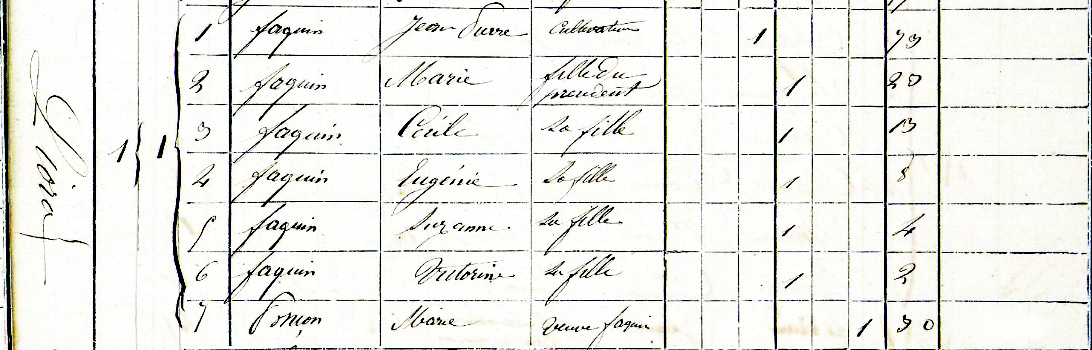 1 Jaquin Jean Pierre Cultivateur 1 73
2 Jaquin Marie fille du 1 23
précédent
3 Jaquin Cécile sa fille 1 13
1 } 1
4 Jaquin Eugénie sa fille 1 8
5 Jaquin Suzanne sa fille 1 4
6 Jaquin Victorine sa fille 1 2
7 Marie Veuve Jaquin 1 30